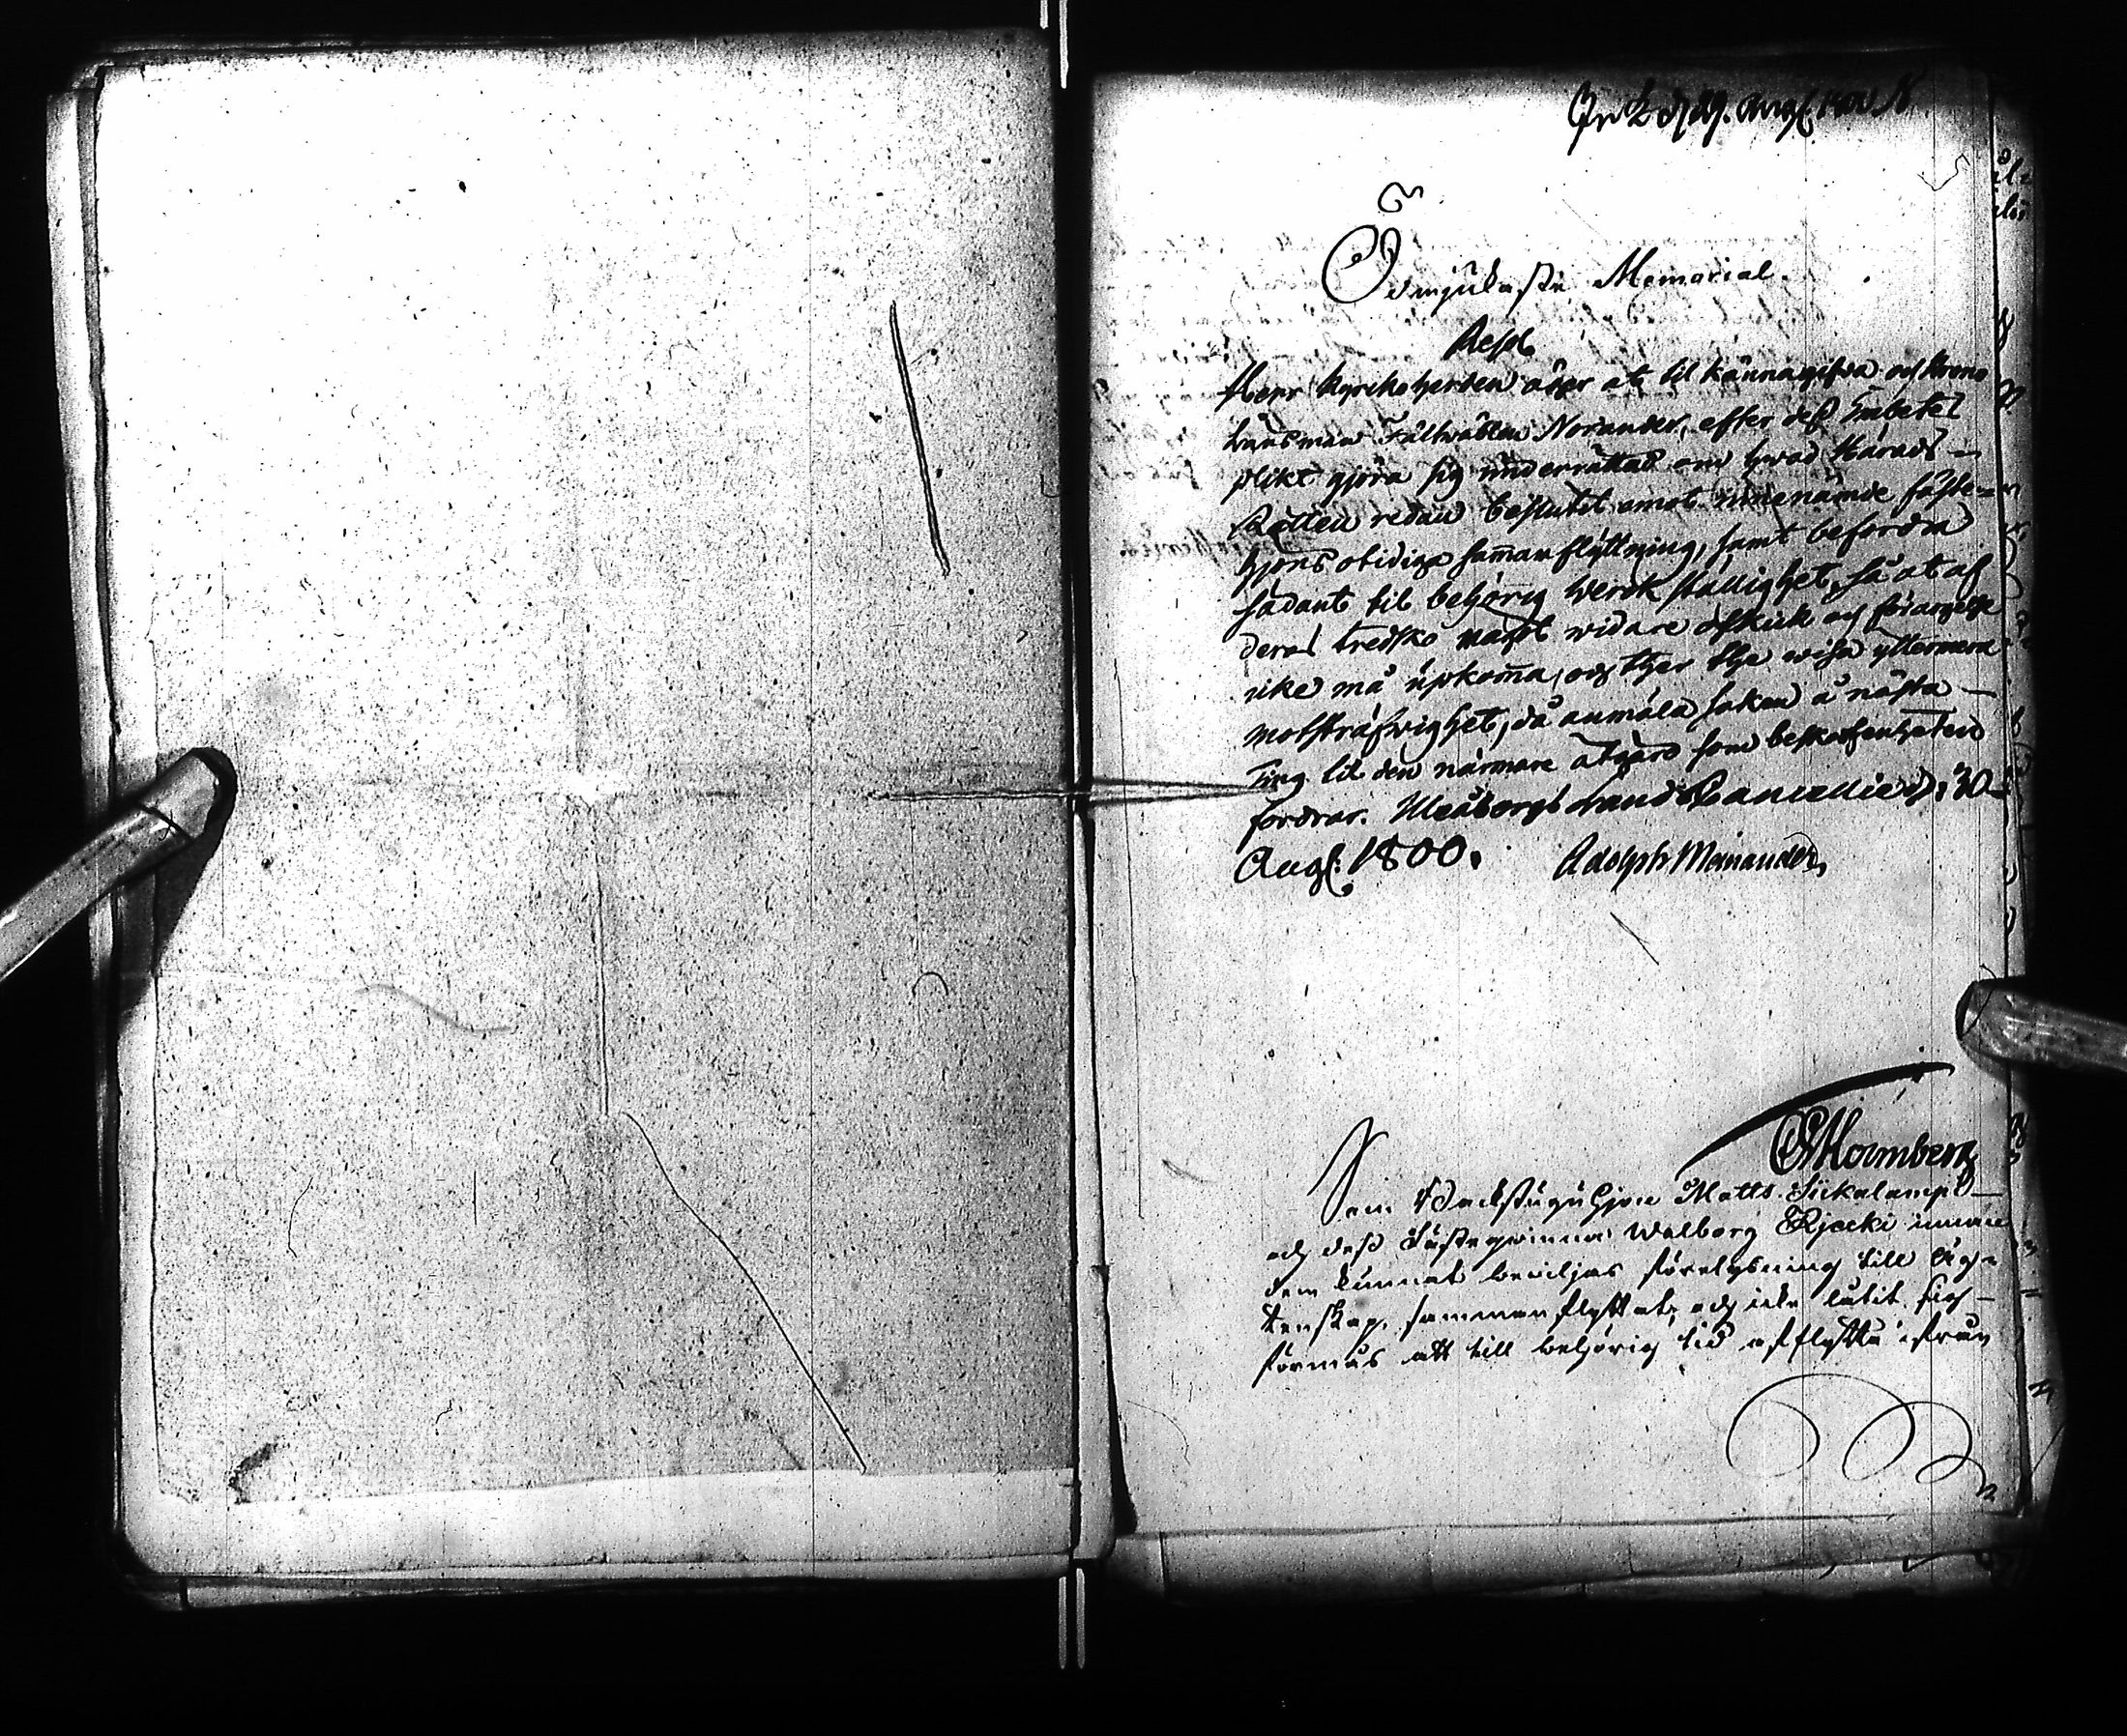 Ödmjukaste Memorial.
Resol.
Herr Kyrkoherden äger at til känna gifva och Krono
Länsman Fältwäblen Norander, efter dess Embetes
plikt gjöra sig underrättad om hwad Härads-
Rätten redan beslutit emot innenämde fäste-
hjons otidiga samanflyttning, samt befordra
sådant til behörig Werckställighet, så at af
deras tredsko något widare oskick och förargelse
icke må upkoma, och ther the wisa yttermera
motsträfwighet, då anmäla saken å nästa
Ting til den närmare åtgärd som beskaffenheten
fordrar. Uleåborgs Lands Cancellie d: 30
Aug: 1800. Adolph Meinander
Holmberg
Som Backstuguhjon Matts Siikalampi
och dess Fästeqwinna Walborg Rjecki innan
dem kunnat bewiljas förelysning till äg-
tenskap, sammanflyttat, och icke låtit sig
förmås att till behörig tid afflytta ifrån